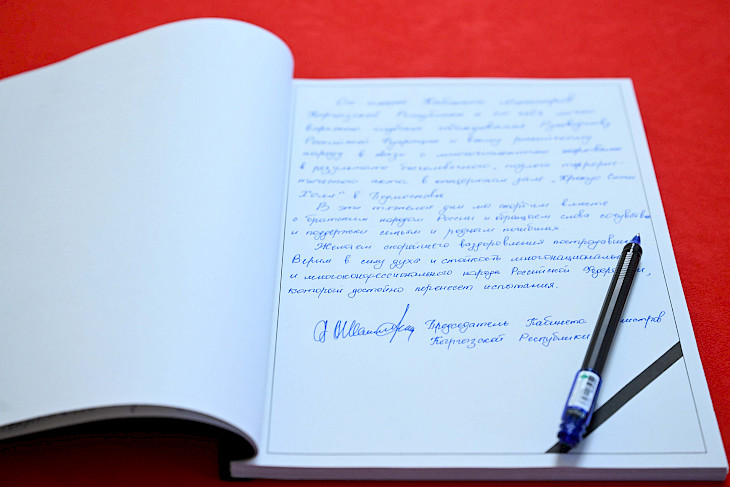 От имени Кабинета Министров
Кыргызской Республики и от себя лично
выражаю глубокие соболезнования Руководству
Российской Федерации и всему российскому
народу в связи с многочисленными жертвами
в результате бесчеловечного, подлого террорис-
тического акта в концертном зале „Крокус Сити
Холл" в Подмосковье.
В эти тяжелые дни мы скорбим вместе
с братским народом России и обращаем слова сочувствия
и поддержки семьям и родным погибших.
Желаем скорейшего выздоровления пострадавшим.
Верим в силу духа и стойкость многонационально
и многоконфессионального народа Российской Федерации,
который достойно перенесет испытания.
Председатель Кабинета Министров
Кыргызской Республики